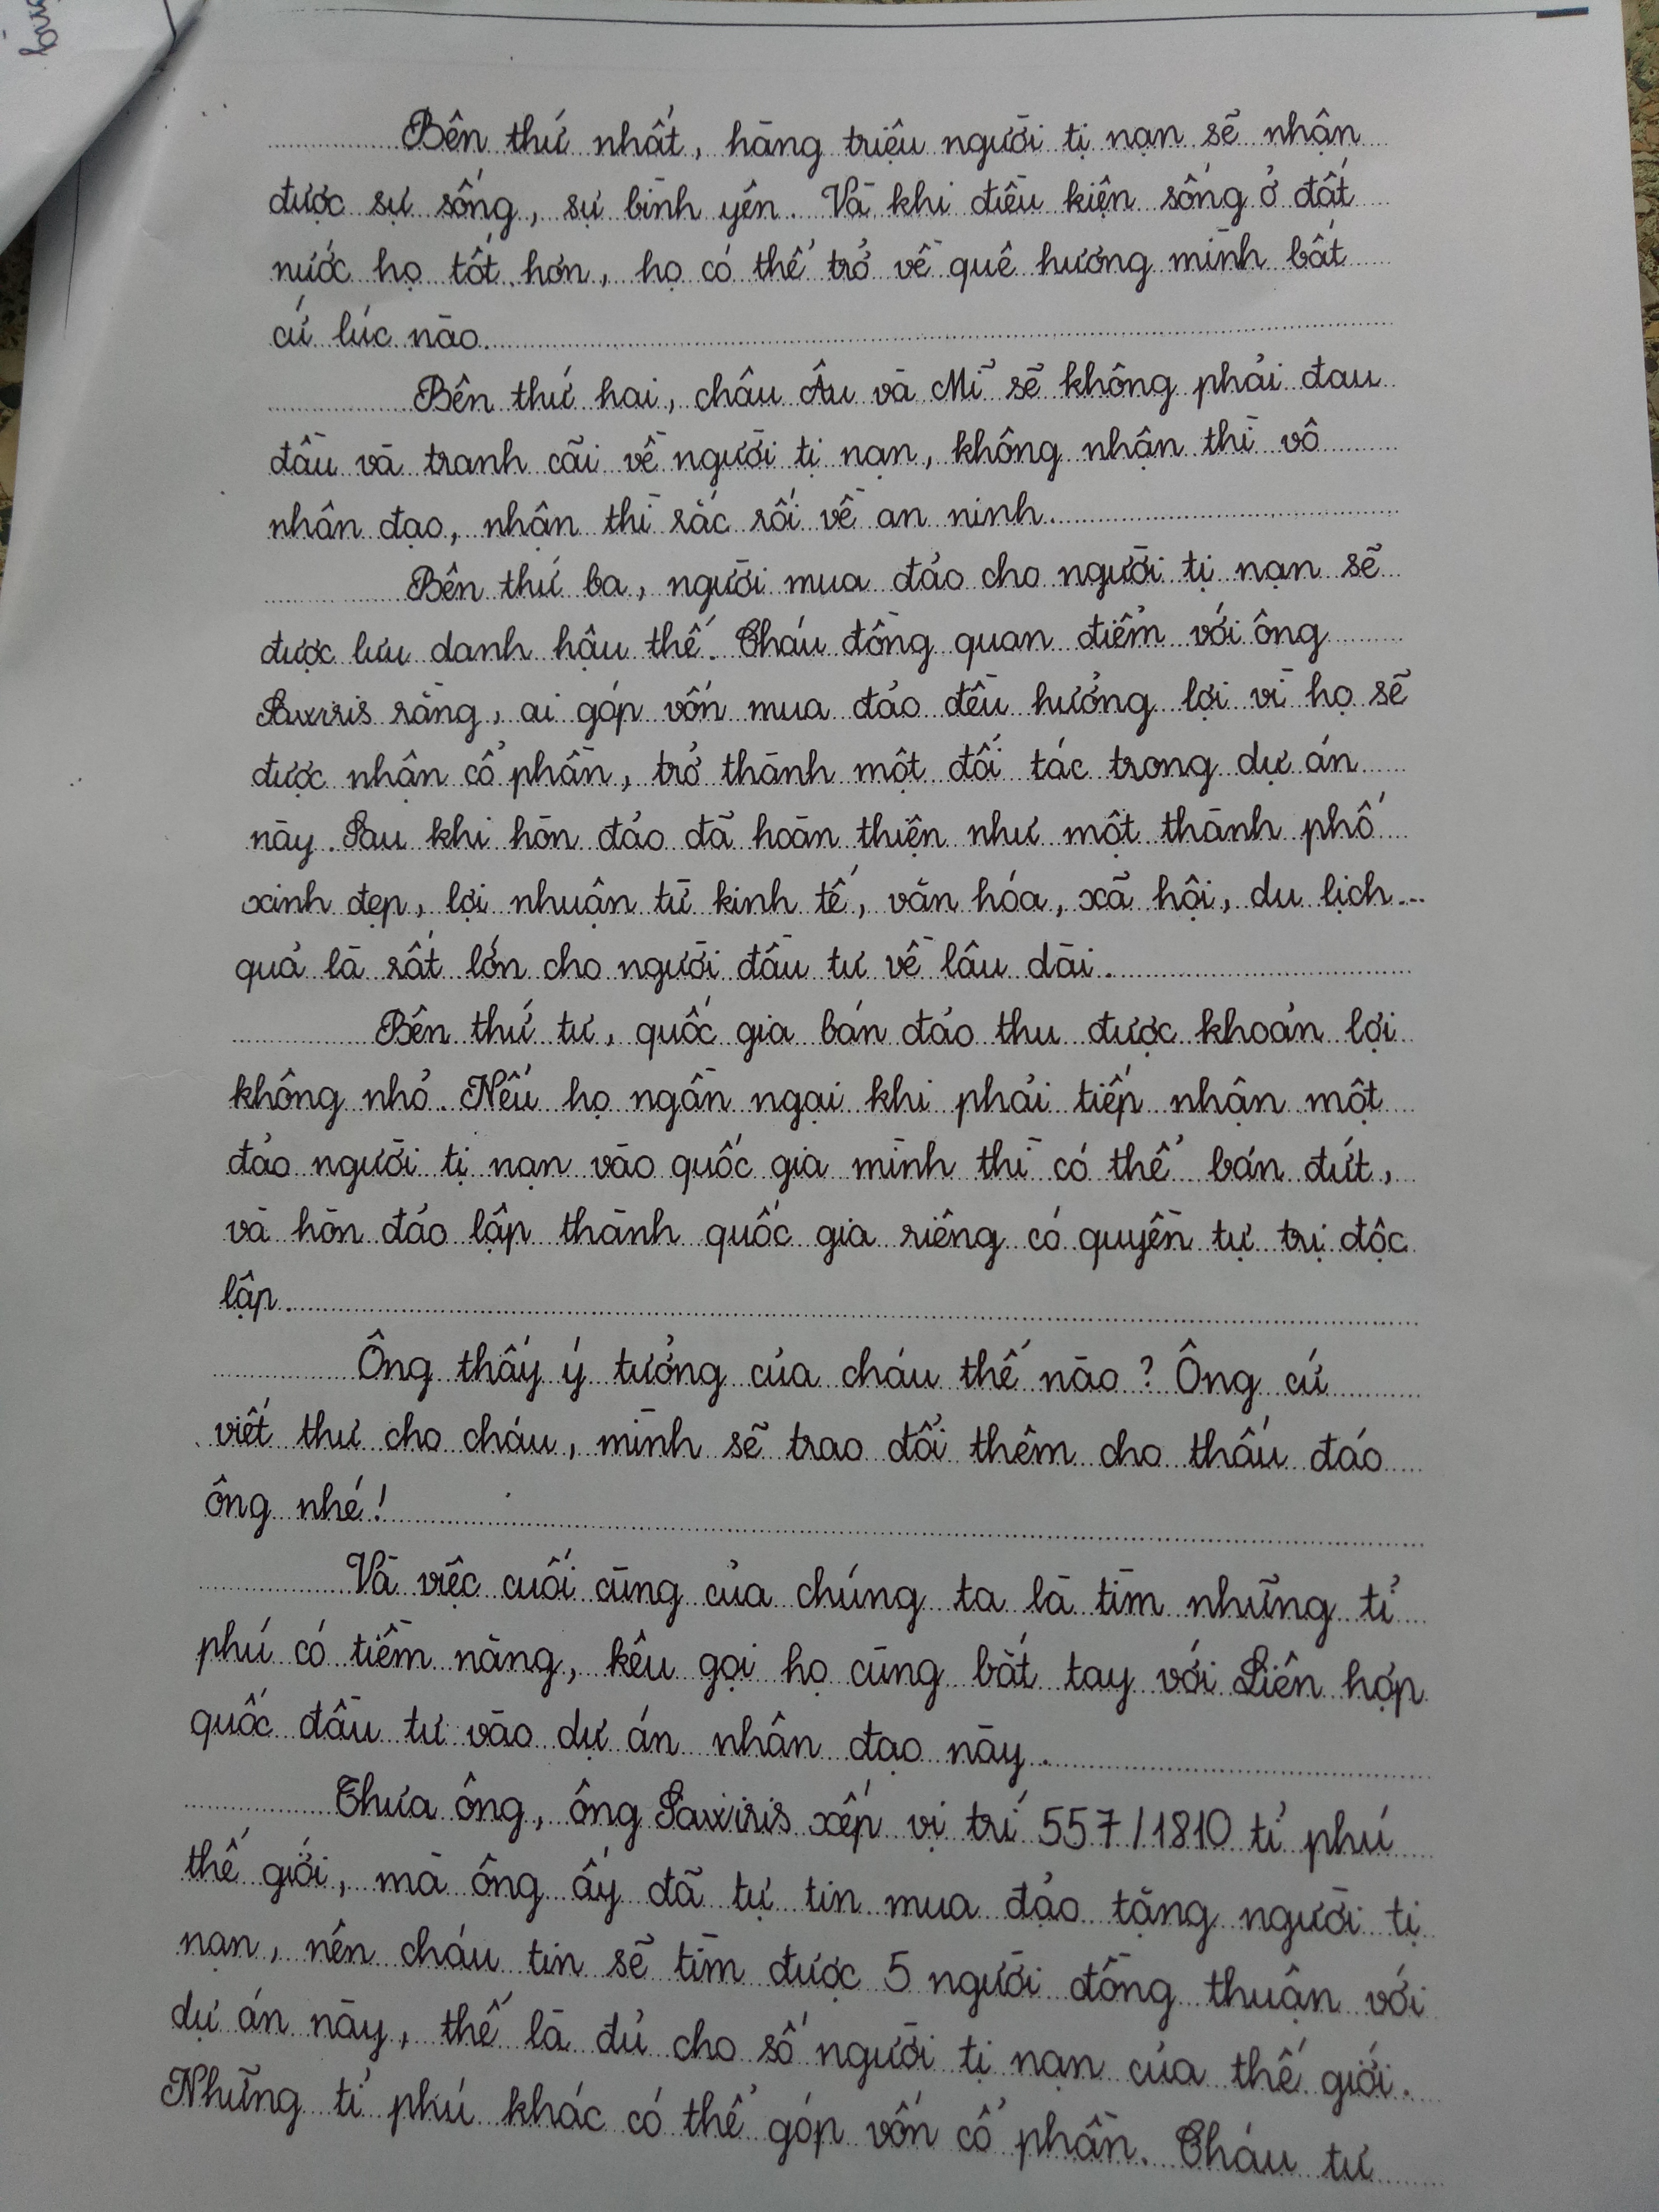 Bên thứ nhất, hàng triệu người tị nạn sẽ nhận
được sự sống, sự bình yên. Và khi điều kiện sống ở đất
nước họ tốt hơn, họ có thể trở về quê hương mình bất
cứ lúc nào.
Bên thứ hai, châu Âu và Mĩ sẽ không phải đau
đầu và tranh cãi về người tị nạn, không nhận thì vô
nhân đạo, nhận thì rắc rối về an ninh.
Bên thứ ba, người mua đảo cho người tị nạn sẽ
được lưu danh hậu thế. Cháu đồng quan điểm với ông
Sawiris rằng, ai góp vốn mua đảo đều hưởng lợi vì họ sẽ
được nhận cổ phần, trở thành một đối tác trong dự án
này. Sau khi hòn đảo đã hoàn thiện như một thành phố
xinh đẹp, lợi nhuận từ kinh tế, văn hóa, xã hội, du lịch...
quả là rất lớn cho người đầu tư về lâu dài.
Bên thứ tư, quốc gia bán đảo thu được khoản lợi
không nhỏ. Nếu họ ngần ngại khi phải tiếp nhận một
đảo người tị nạn vào quốc gia mình thì có thể bán đứt,
và hòn đảo lập thành quốc gia riêng có quyền tự trị độc
lập.
Ông thấy ý tưởng của cháu thế nào? Ông cứ
viết thư cho cháu, mình sẽ trao đổi thêm cho thấu đáo
ông nhé!
Và việc cuối cùng của chúng ta là tìm những tỉ
phú có tiềm năng, kêu gọi họ cùng bắt tay với Liên hợp
quốc đầu tư vào dự án nhân đạo này.
Thưa ông, ông Sawiris xếp vị trí 557/1810 tỉ phú
thế giới, mà ông ấy đã tự tin mua đảo tặng người tị
nạn, nên cháu tin sẽ tìm được 5 người đồng thuận với
dự án này, thế là đủ cho số người tị nạn của thế giới.
Những tỉ phú khác có thể góp vốn cổ phần. Cháu tư